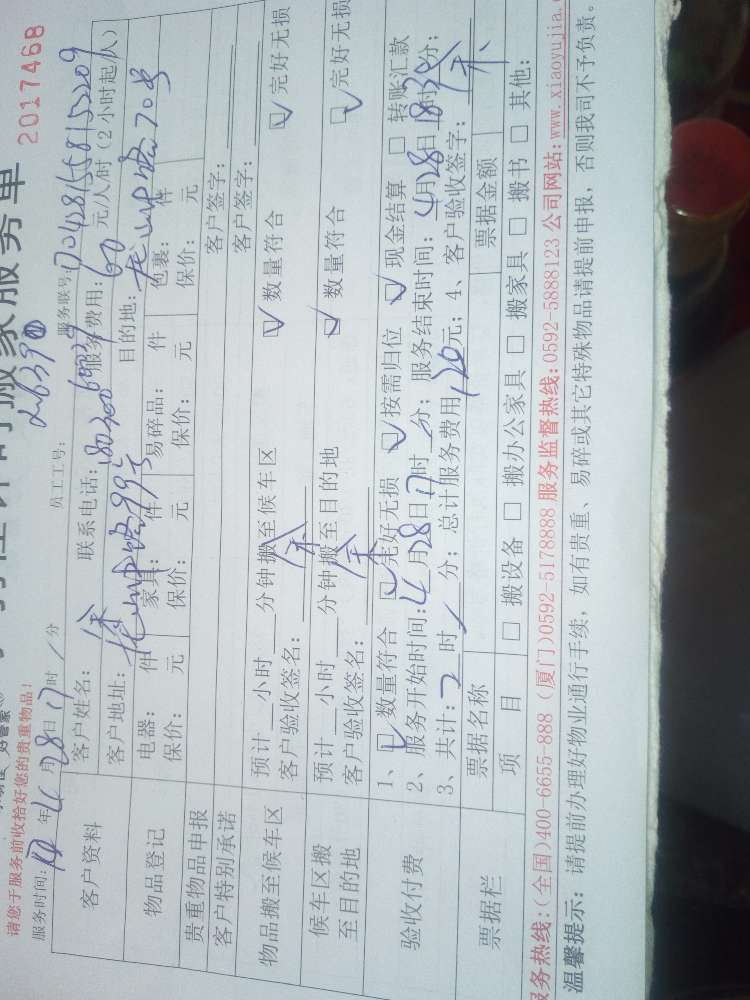 搬家服务单
2017468
请您于服务前收拾好您的贵重物品！
26390
服务时间：17年4月28日17时/分 员工工号： 服务联号：004281558153209
客户资料 客户姓名：余 联系电话： 服务费用：60元/人/时（2小时起/人）
客户地址：龙山中路99号 目的地：龙山中路70号
物品登记 电器：件 家具：件 易碎品：件 包裹：件
保价：元 保价：元 保价：元 保价：元
贵重物品申报 客户签字：
客户特别承诺 客户签字：
物品搬至候车区 预计__小时__分钟搬至候车区 ☑数量符合 ☑完好无损
客户验收签名：余
候车区搬至目的地 预计__小时__分钟搬至目的地 ☑数量符合 ☑完好无损
客户验收签名：余
验收付费 1、☑数量符合 ☑完好无损 ☑按需归位 ☑现金结算 □转账汇款
2、服务开始时间：4月28日17时/分；服务结束时间：4月28日18时30分；
3、共计：2时/分；总计服务费用120元；4、客户验收签字：余
票据栏 票据名称 票据金额
项目 □搬设备 □搬办公家具 □搬家具 □搬书 □其他：
服务热线：(全国)400-6655-888 (厦门)0592-5178888 服务监督热线：0592-5888123 公司网站：www.xiaoyujia.
温馨提示：请提前办理好物业通行手续，如有贵重、易碎或其它特殊物品请提前申报，否则我司不予负责。